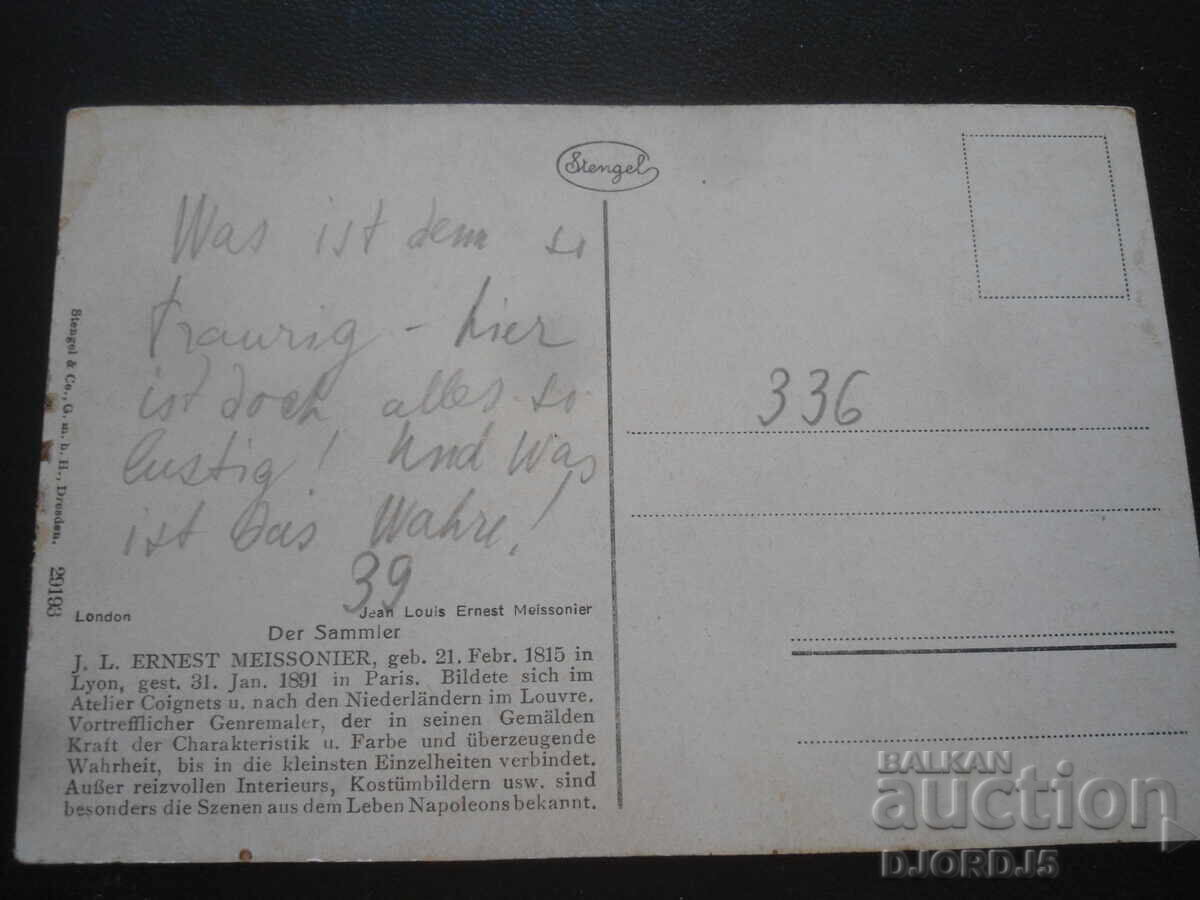 Stengel
Was ist denn so
traurig – hier
ist doch alles so
lustig! Und Was
ist das Wahre!
39
336
Stengel & Co., G. m. b. H., Dresden. 29193
London
Jean Louis Ernest Meissonier
Der Sammler
J. L. ERNEST MEISSONIER, geb. 21. Febr. 1815 in
Lyon, gest. 31. Jan. 1891 in Paris. Bildete sich im
Atelier Coignets u. nach den Niederländern im Louvre.
Vortrefflicher Genremaler, der in seinen Gemälden
Kraft der Charakteristik u. Farbe und überzeugende
Wahrheit, bis in die kleinsten Einzelheiten verbindet.
Außer reizvollen Interieurs, Kostümbildern usw. sind
besonders die Szenen aus dem Leben Napoleons bekannt.
BALKAN
auction
DJORDJ5